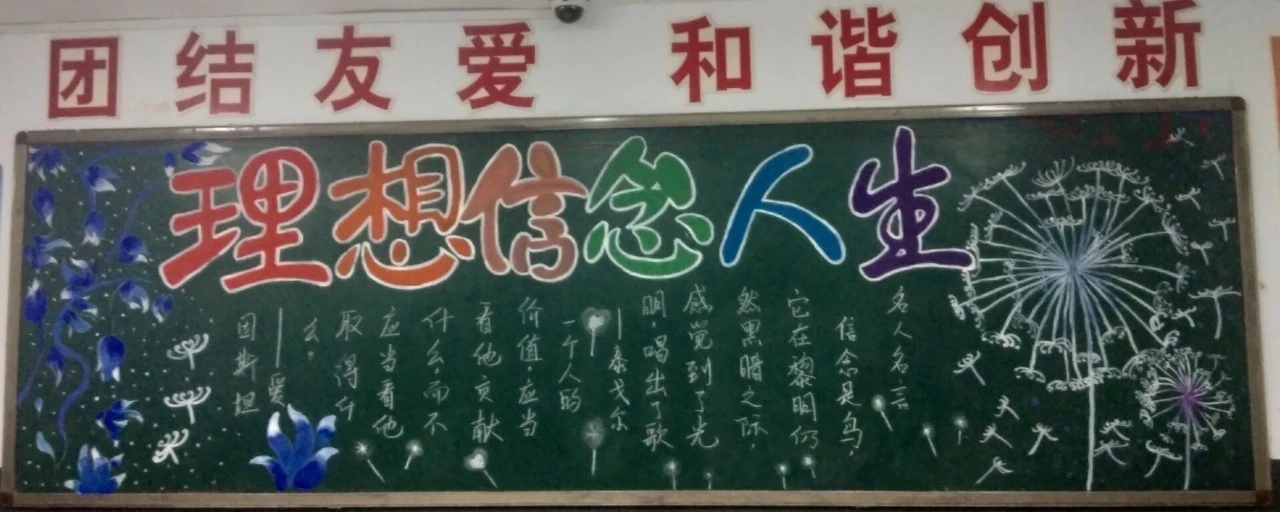 团结友爱 和谐创新
理想信念人生
名人名言
信念是鸟，
它在黎明仍
然黑暗之际
感觉到了光
明，唱出了歌
——泰戈尔
一个人的
价值，应当
看他贡献
什么，而不
应当看他
取得什
么。
——爱
因斯坦